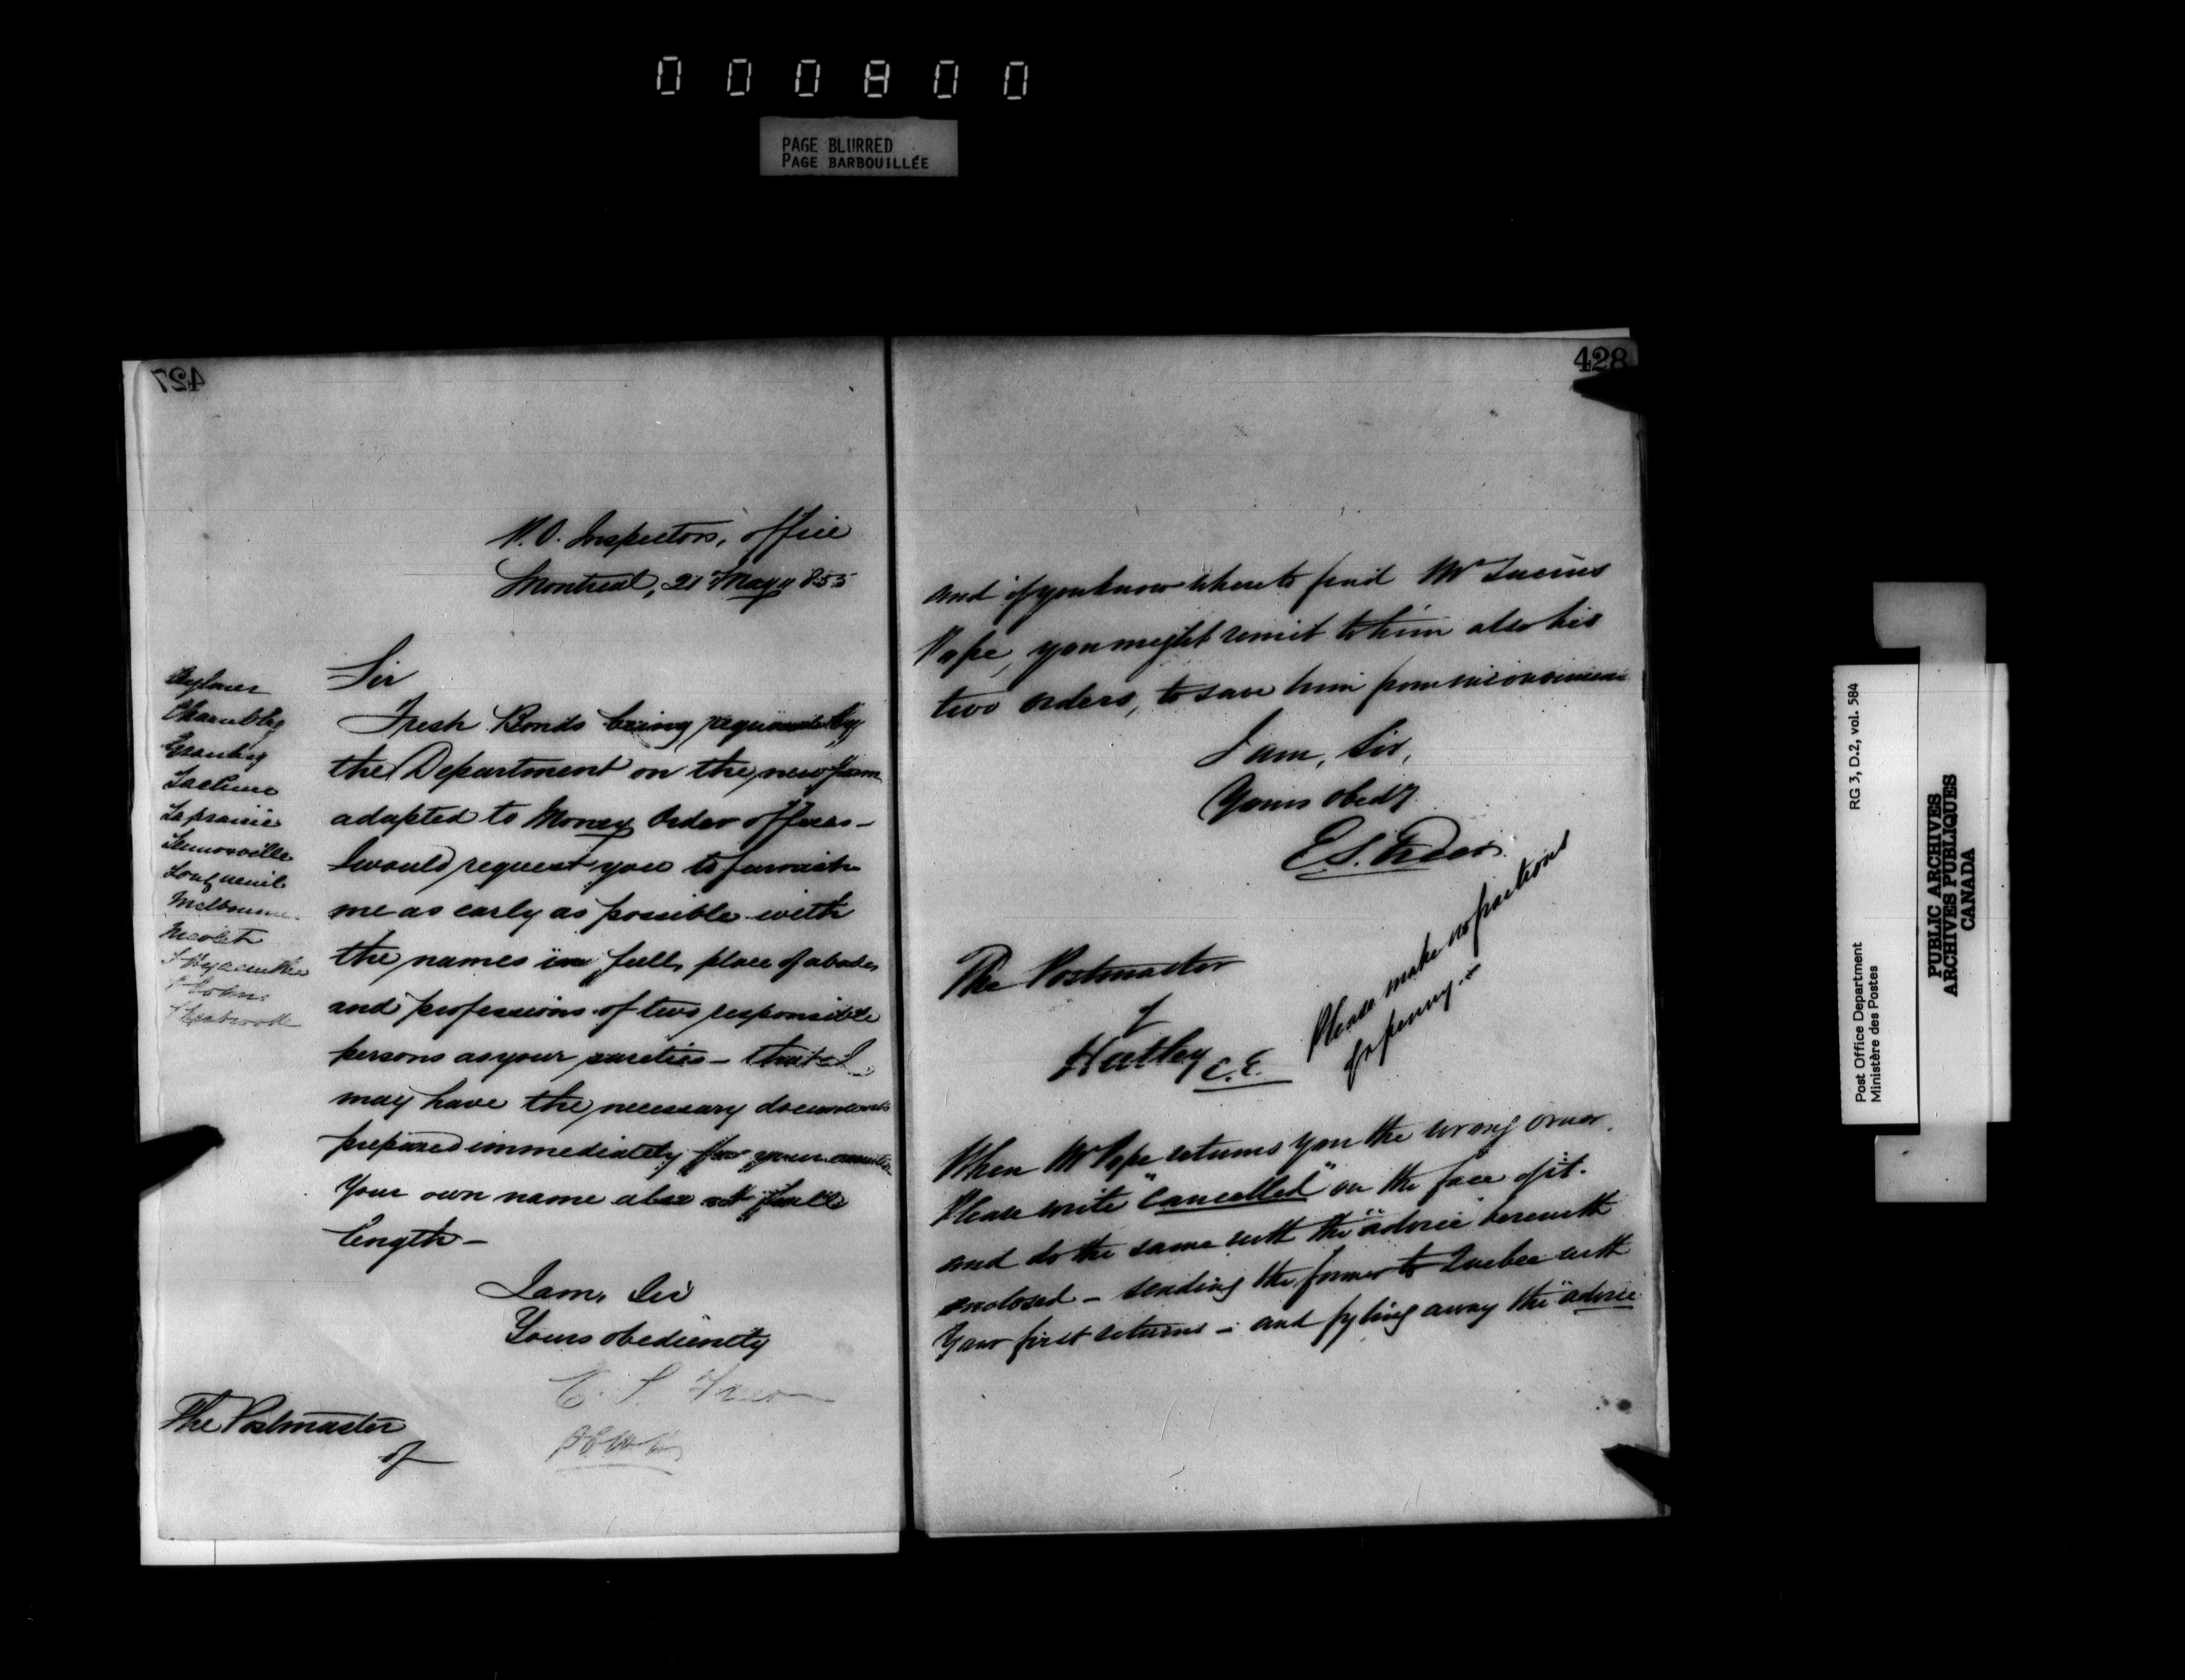 000800
PAGE BLURRED
PAGE BARBOUILLÉE
427
P.O. Inspectors, office
Montreal, 21 May 1855
Sir
Aylmer
Chambly
Granby
Lachine
Laprairie
Lennoxville
Longueuil
Melbourne
Nicolet
St Hyacinthe
St Johns
Sherbrooke
Fresh Bonds being required by
the Department on the new form
adapted to Money Order offices -
I would request you to furnish
me as early as possible with
the names in full, place of abode,
and professions of two responsible
persons as your sureties - that I
may have the necessary documents
prepared immediately for your execution
Your own name also at full
length -
I am, Sir
Yours obediently
E. S. Freer
The Postmaster
of
428
and if you know where to find Mr Lucius
Pope, you might remit to him also his
two orders, to save him from inconvenience
I am, Sir,
Yours obedy
E.S. Freer
The Postmaster
of
Hatley C.E.
Please make no fractions
of a penny.
When Mr Pope returns you the wrong order.
Please write "Cancelled" on the face of it.
and do the same with the "advice" herewith
enclosed - sending the former to Quebec with
Your first returns - and fyling away the "advice
Post Office Department
Ministère des Postes
RG 3, D.2, vol. 584
PUBLIC ARCHIVES
ARCHIVES PUBLIQUES
CANADA